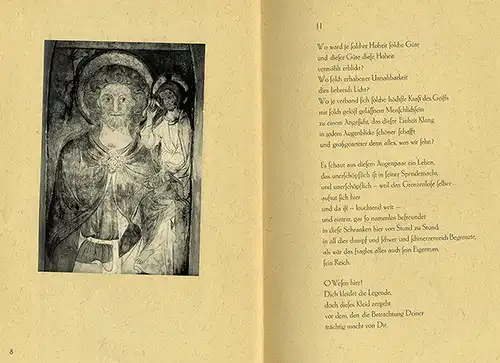 II
Wo ward je solcher Hoheit solche Güte
und dieser Güte diese Hoheit
vermählt erblickt?
Wo solch erhabener Unnahbarkeit
dies liebereich Licht?
Wo je verband sich solche höchste Kraft des Geists
mit solch gelöst gelassnem Menschlichsein
zu einem Angesicht, das dieser Einheit Klang
in jedem Augenblicke schöner schafft
und großgearteter denn alles, was wir sehn?
Es schaut aus diesem Augenpaar ein Leben,
das unerschöpflich ist in seiner Spendemacht,
und unerschöpflich – weil das Grenzenlose selber
auftut sich hier
und da ist – leuchtend weit –
und eintritt, gar so namenlos befreundet
in diese Schranken hier von Stund zu Stund,
in all dies dumpf und schwer und schmerzenreich Begrenzte,
als wär das fraglos alles auch sein Eigentum,
sein Reich.
O Wesen hier!
Dich kleidet die Legende,
doch dieses Kleid zergeht
vor dem, den die Betrachtung Deiner
trächtig macht von Dir.
8